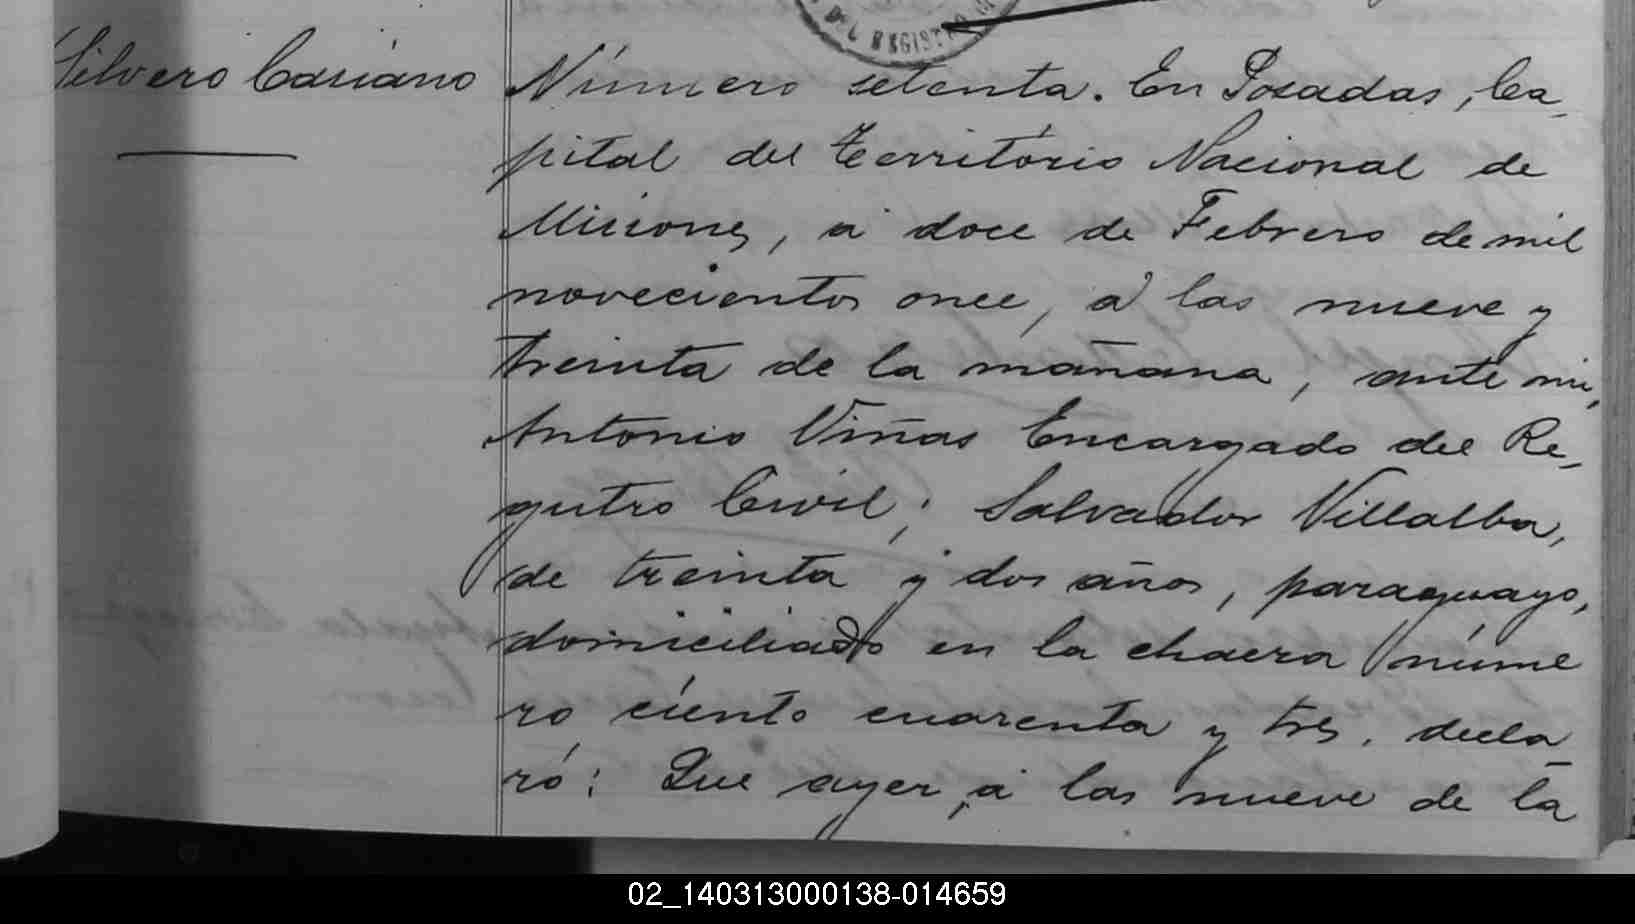 DEL REGISTRO
Silvero Casiano
Número setenta. En Posadas, Ca-
pital del Território Nacional de
Misiones, á doce de Febrero de mil
novecientos once, á las nueve y
treinta de la mañana, ante mi,
Antonio Viñas Encargado del Re-
gistro Civil; Salvador Villalba,
de treinta y dos años, paraguayo,
domiciliado en la chacra núme
ro ciento cuarenta y tres, decla-
ró: Que ayer, á las nueve de la
02_140313000138-014659